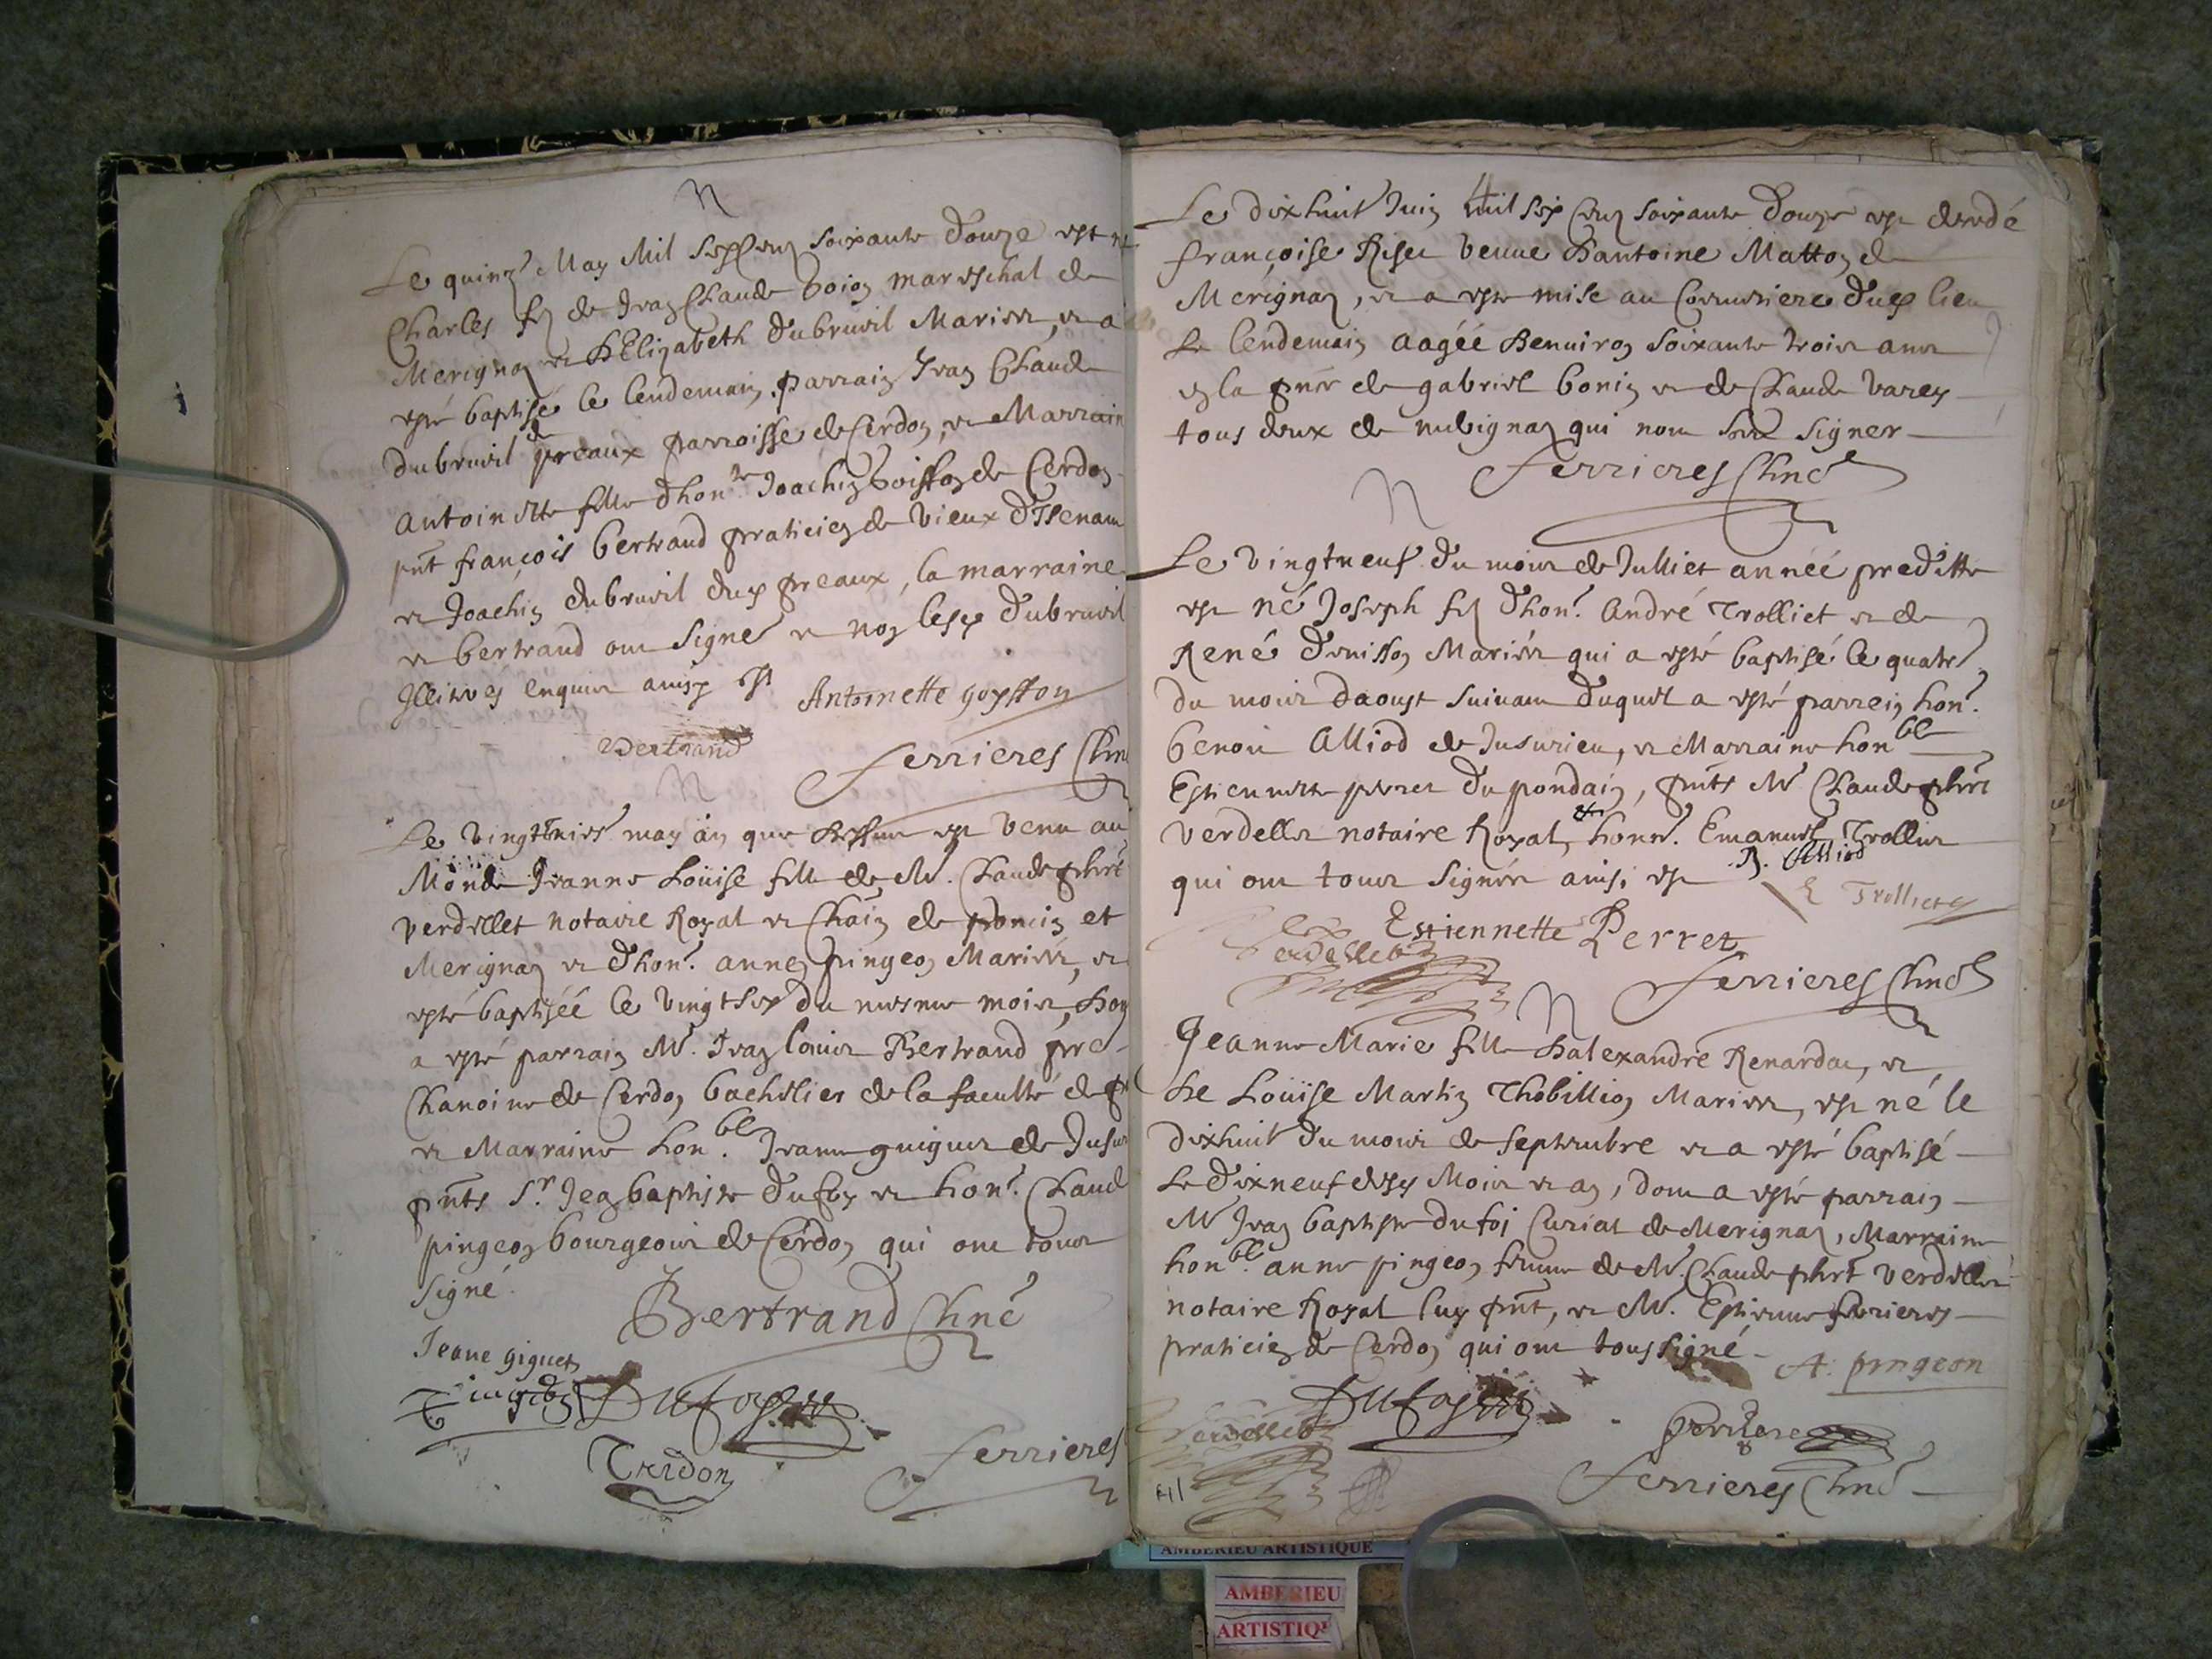 N
Le quinz.e May Mil Six Cens soixante douze est né
Charles fils de Jean Claude boion mareschal de
Merignaz et d'Elizabeth dubrueil Mariez, et a
esté baptisé le lendemain, parrain Jean Claude
dubrueil de preaux parroisse de Cerdon, et Marraine
Antoinette fille d'hon.ble Joachin boisson de Cerdon
pnt françois bertrand praticien de vieux d'Isenam
et Joachin dubrueil dup preaux, la marraine
et bertrand ont signé et non lesp dubrueil
Illiterés enquis ainsy est Antoinette goysson
Bertrand
Ferrieres Chne
N
Le vingttrois may an que dessus est venu au
Monde Jeanne Loüise fille de M.e Claude phirt
verdellet notaire Royal et Chain de poncin et
Merignaz et d'hon.e anne pingeon Mariez, et
esté baptiséé le vingtsix du mesme mois, don
a esté parrain M.e Jean louis Bertrand pre
Chanoine de Cerdon bachelier de la faculté de
et Marraine hon.ble Jeanne guiguet de Jusu
pnts S.r Jean baptiste dufoy et hon.e Claud
pingeon bourgeois de Cerdon qui ont tous
signé.
Bertrand Chne
Jeane giguet
Pingeon Dufoy
Tridon
Ferrieres
Le dixhuit Juin Mil six Cens soixante douze est decedé
françoise Riset veuve d'antoine Matton de
Merignaz, et a esté mise au Coemetiere dup lieu
le lendemain aagéé d'environ soixante trois ans
en la pnce de gabriel bonin et de Claude varey
tous deux de mubignaz qui n'ont sceu signer
Ferrieres Chne
N
Le vingtneuf du mois de Julliet annéé preditte
est né Joseph fils d'hon.e André Trolliet et de
René d'enisson Mariez qui a esté baptisé le quatre
du mois daoust suivant duquel a esté parrein hon.e
benoit Alliod de Jusurieu, et Marraine hon.ble
Estiennette perret du pondain, pnts M.e Claude phirt
verdellet notaire Royal, honn.e Emanuel Trolliet
qui ont tous signéz ainsi est B. Alliod
E Trolliet
Estiennette Perret
Verdellet
Ferrieres Chne
N
Jeanne Marie fille d'alexandre Renardat, et
de Loüise Martin Thobillion Mariez, est né le
dixhuit du mois de septembre et a esté baptisé
le dixneuf desp Mois et an, dont a esté parrain
M.e Jean baptiste dufoi Curial de Merignaz, Marraine
hon.ble anne pingeon femme de M.e Claude phirt verdellet
notaire Royal luy pnt, et M.e Estienne ferrieres
praticien de Cerdon qui ont tous signé
A. pingeon
Dufoy
Verdellet
Ferrieres
Ferrieres Chne
AMBERIEU ARTISTIQUE
AMBERIEU
ARTISTIQU